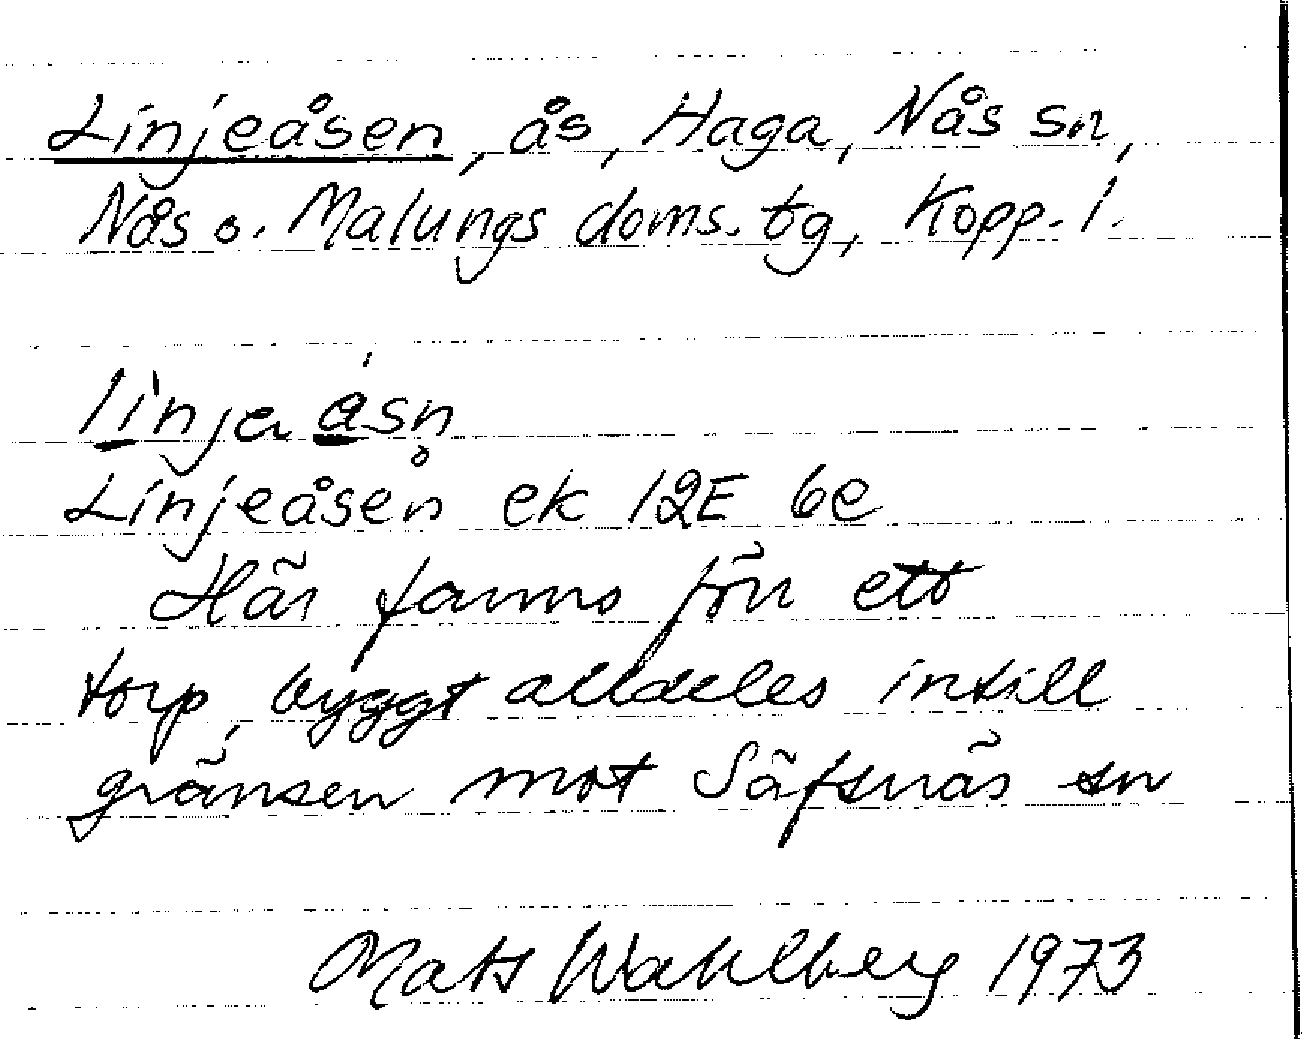 Linjeåsen, ås, Haga, Nås sn,
Nås o. Malungs doms. tg, Kopp. l.
linjaåsn̥
Linjeåsen ek 12E 6e
Här fanns förr ett
torp, byggt alldeles intill
gränsen mot Säfsnäs sn
Mats Wahlberg 1973